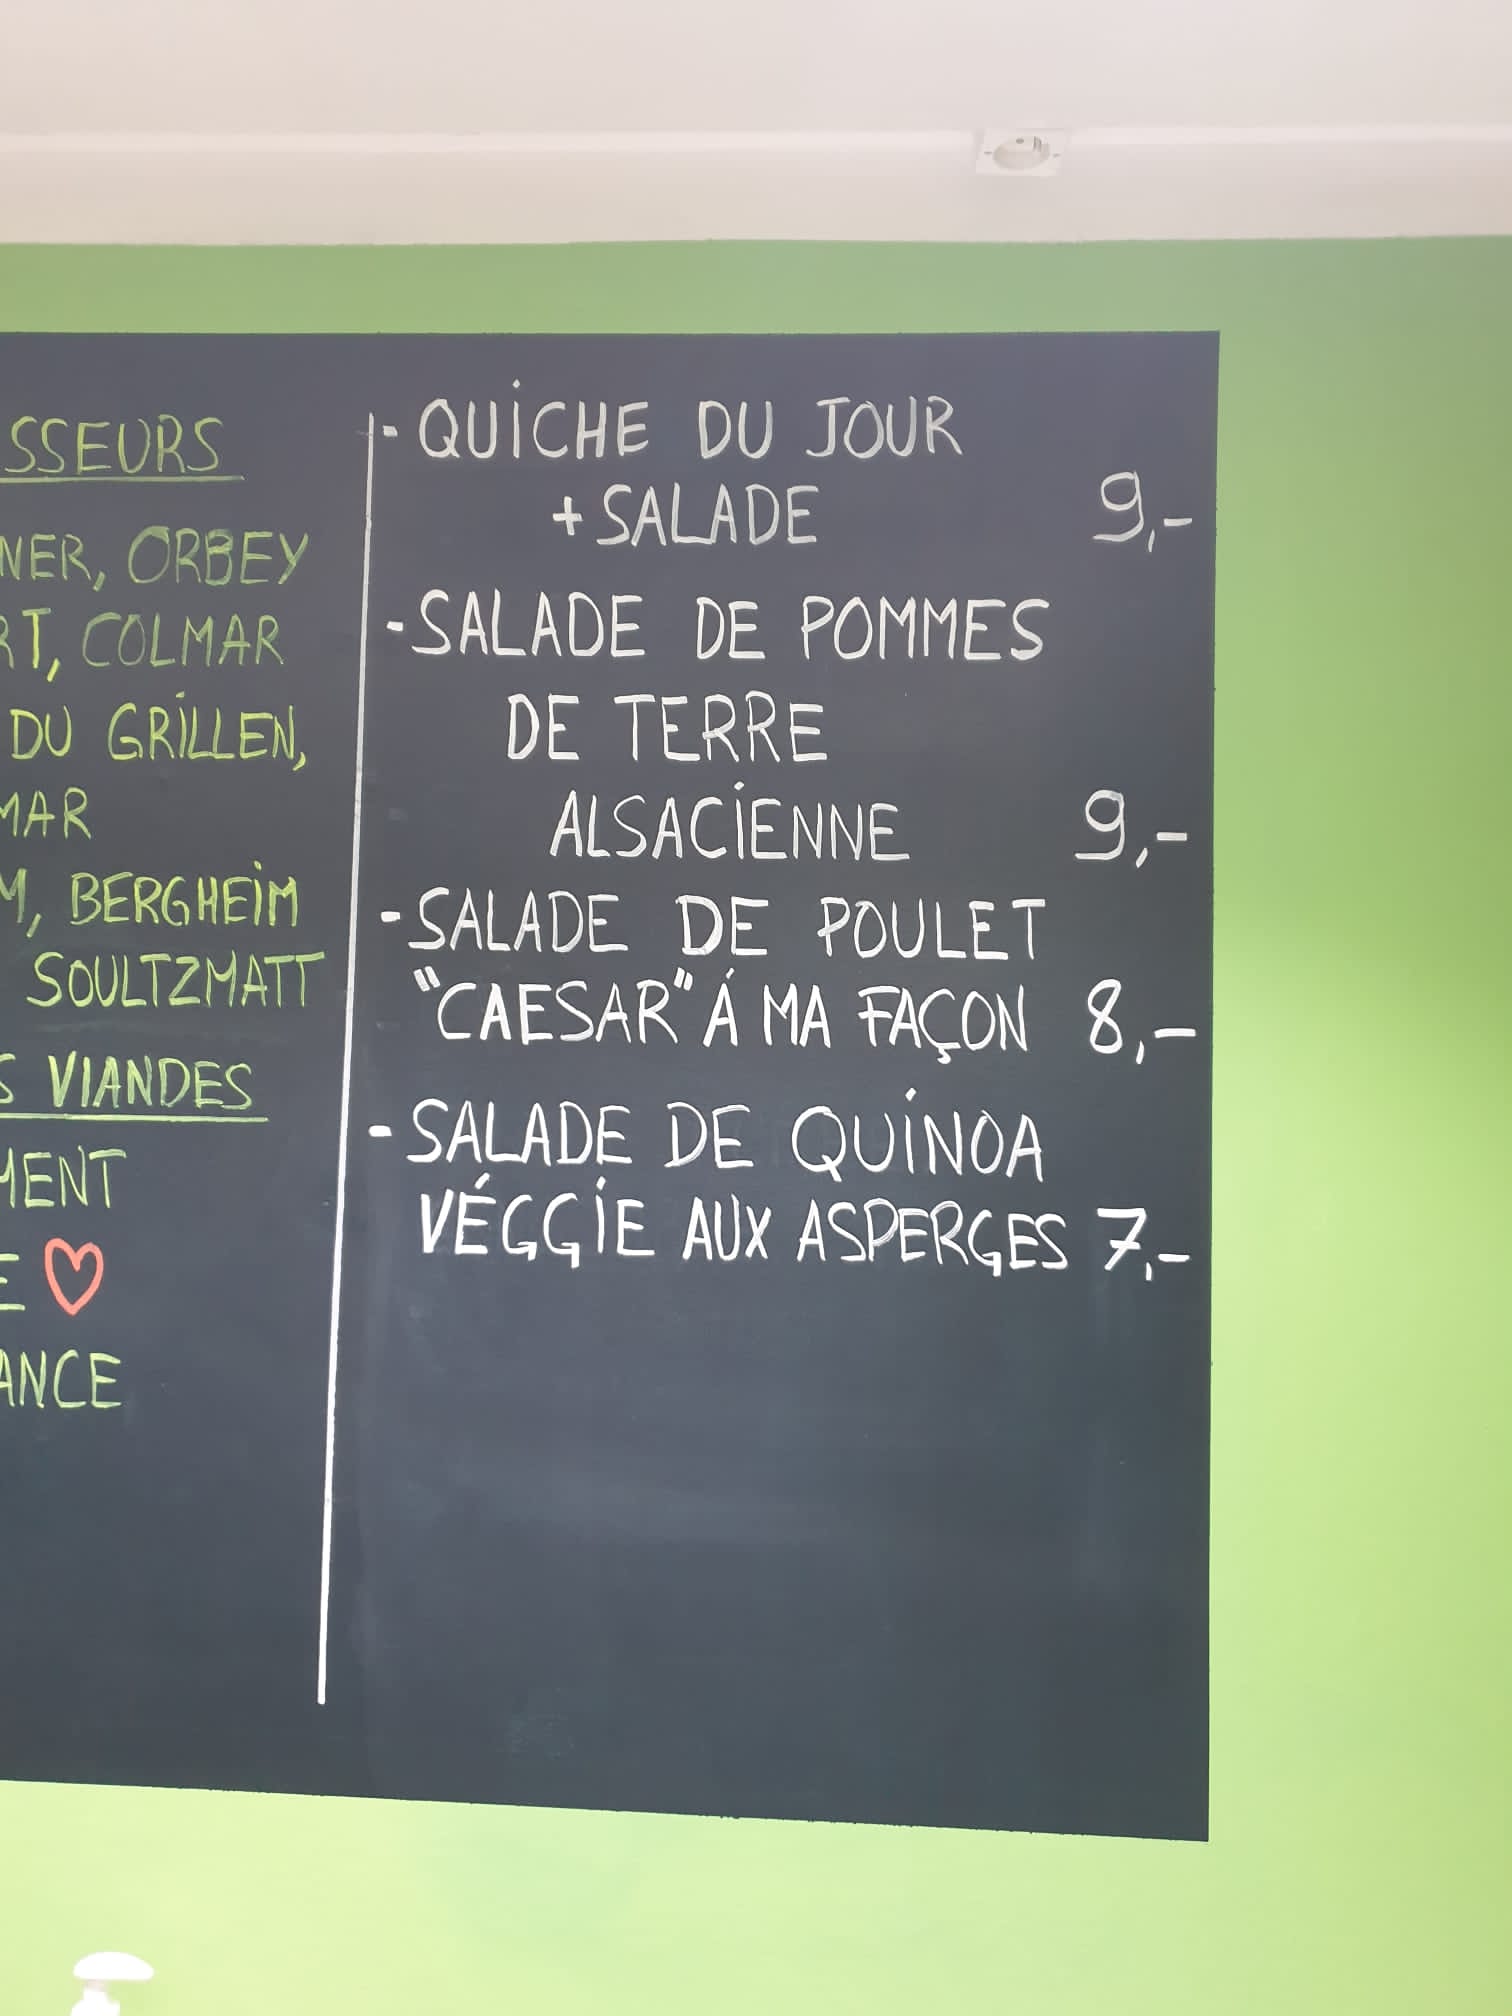 SSEURS
NER, ORBEY
RT, COLMAR
DU GRILLEN,
MAR
M, BERGHEIM
SOULTZMATT
S VIANDES
MENT
E ♡
ANCE
- QUICHE DU JOUR
+ SALADE 9,-
- SALADE DE POMMES
DE TERRE
ALSACIENNE 9,-
- SALADE DE POULET
"CAESAR" Á MA FAÇON 8,-
- SALADE DE QUINOA
VÉGGIE AUX ASPERGES 7,-